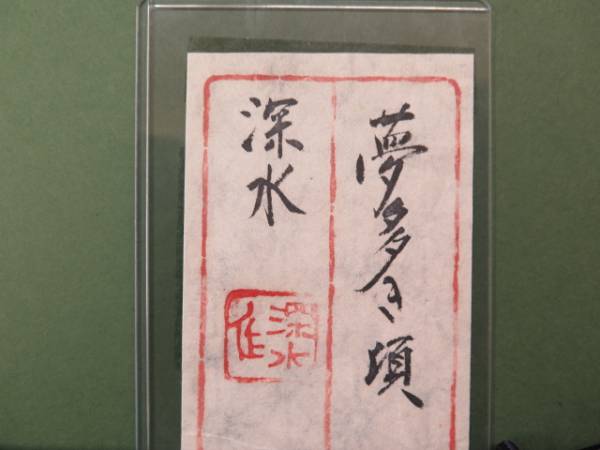 夢多き頃
深水
深水作